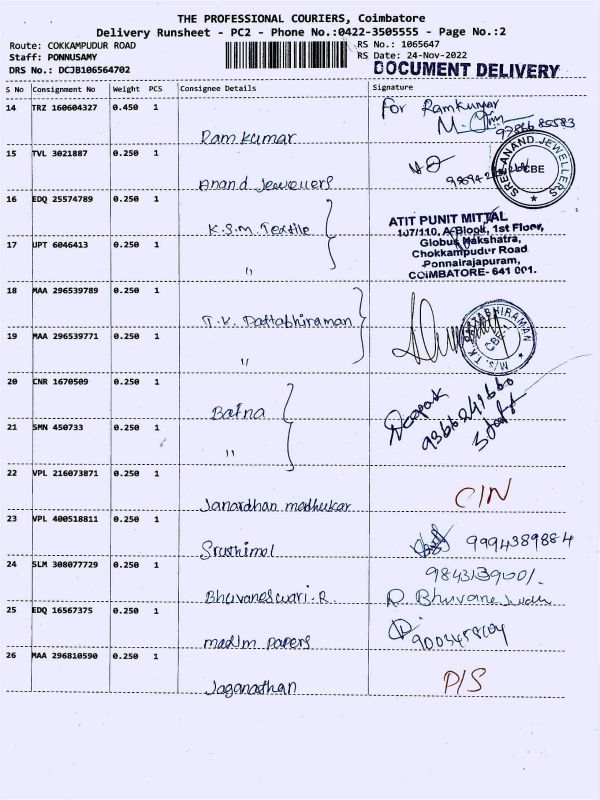 THE PROFESSIONAL COURIERS, Coimbatore
Delivery Runsheet - PC2 - Phone No.:0422-3505555 - Page No.:2
Route: COKKAMPUDUR ROAD
RS No.: 1065647
Staff: PONNUSAMY
RS Date: 24-Nov-2022
DRS No.: DCJB106564702
DOCUMENT DELIVERY
S No Consignment No Weight PCS Consignee Details Signature
14 TRZ 160604327 0.450 1
For Ramkumar
Ram kumar
15 TVL 3021887 0.250 1
SREE ANAND JEWELLERS
CBE
Anand Jewellers
16 EDQ 25574789 0.250 1
K.S.M. Textile
ATIT PUNIT MITTAL
1J7/110, A-Block, 1st Floor,
Globus Nakshatra,
Chokkampudur Road
Ponnairajapuram,
COIMBATORE- 641 001.
17 UPT 6046413 0.250 1
"
18 MAA 296539789 0.250 1
T.K. Pattabhiraman
M/S. T.K. PATTABHIRAMAN
CBE-1
19 MAA 296539771 0.250 1
"
20 CNR 1670509 0.250 1
Bafna
Deepak
21 SMN 450733 0.250 1
"
22 VPL 216073871 0.250 1
Janardhan madhukar
C/N
23 VPL 400518811 0.250 1
Sruthimol
9994389884
24 SLM 308077729 0.250 1
Bhuvaneswari.R
25 EDQ 16567375 0.250 1
madim papers
26 MAA 296810590 0.250 1
Jaganathan
P/S